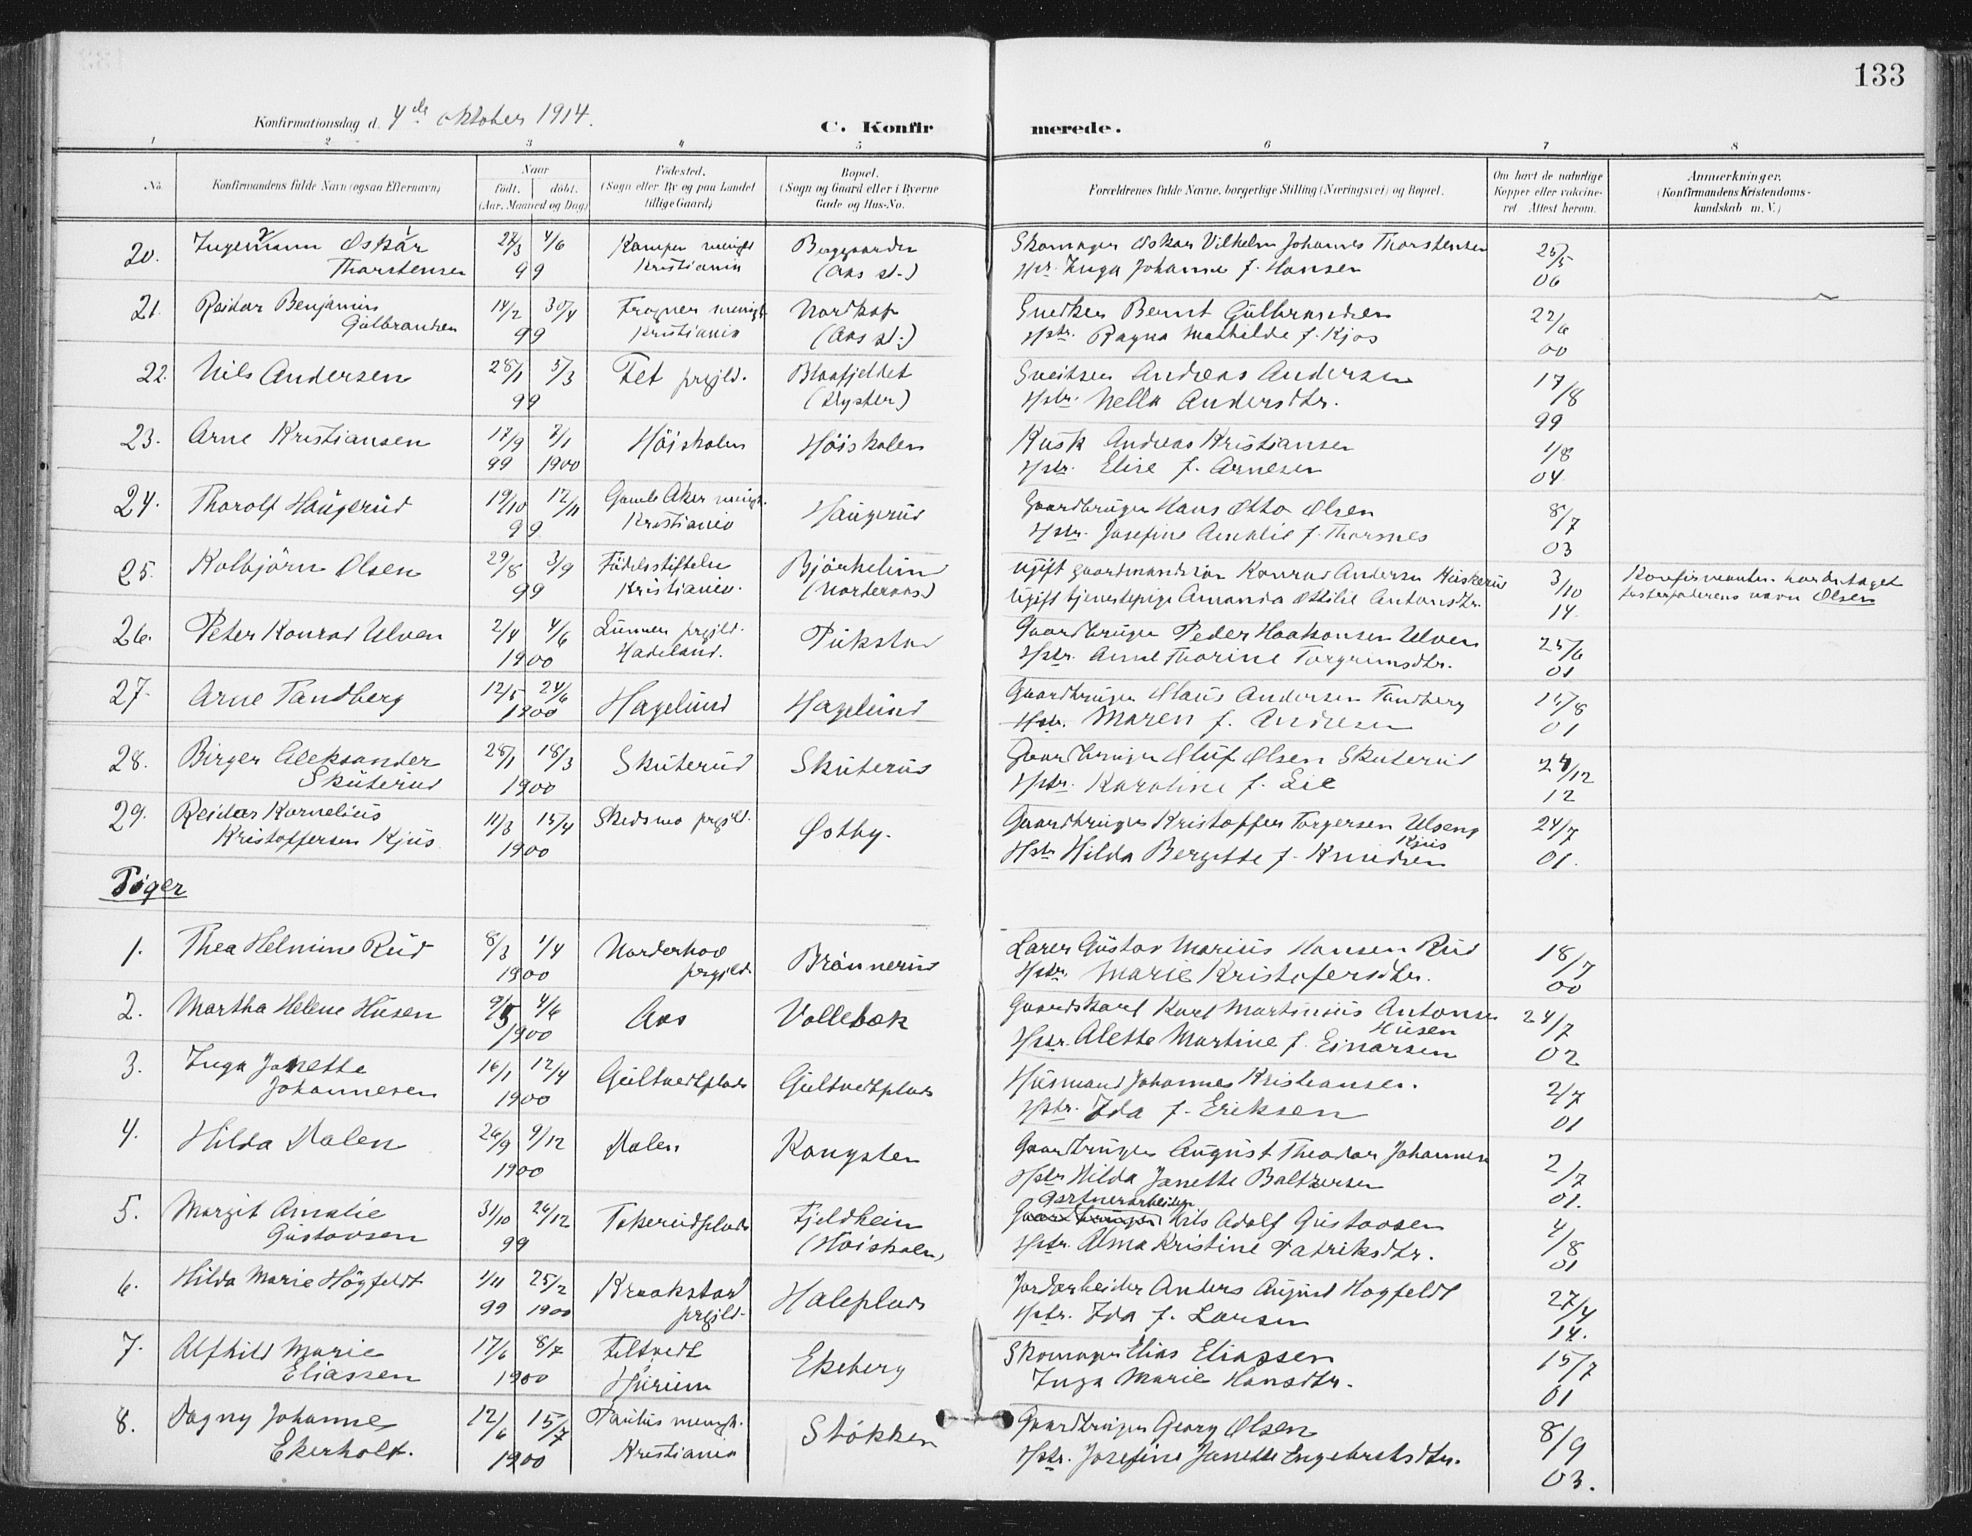 133
Konfirmationsdag d. 4de oktober 1914.
C. Konfirmerede.
1 2 3 4 5 6 7 8
No. Konfirmandens fulde Navn (ogsaa Efternavn) Naar født. døbt. (Aar. Maaned og Dag) Fødested. (Sogn eller By og paa Landet tillige Gaard) Bopæl. (Sogn og Gaard eller i Byerne Gade og Hus-No. Forældrenes fulde Navne, borgerlige Stilling (Næringsvei) og Bopæl. Om havt de naturlige Kopper eller vakcineret. Attest herom. Anmærkninger. (Konfirmandens Kristendomskundskab m. V.)
20. Ingemann Oskar 4/6 Kampen menigh. Skomager Oskar Vilhelm Johannes Thorstensen 25/5
Thorstensen 99 Kristiania (Aas st.) Hstr. Inga Johanne f. Hansen 06
21. Reidar Benjamin 14/2 30/4 Frogner menigh. Nordkap Snedker Bernt Gulbrandsen 22/6
Gulbrandsen 99 Kristiania (Aas st.) Hstr. Ragna Mathilde f. Kjos 00
22. Nils Andersen 28/1 5/3 Fet prgjld. Blaafjeldet Sveitser Andreas Andersen 17/8
99 (Dyster) Hstr. Nella Andersdtr. 99
23. Arne Kristiansen 17/9 7/1 Höiskolen Höiskolen Kusk Andreas Kristiansen 1/8
99 1900 Hstr. Elise f. Arnesen 04
24. Thorolf Haugerud 19/10 12/11 Gamle Aker menigh. Haugerud Gaardbruger Hans Otto Olsen 8/7
99 Kristiania Hstr. Josefine Amalie f. Thorsnes 03
25. Kolbjörn Olsen 29/8 3/9 Födselsstiftelsen Bjørkeheim ugift gaardmandssön Konrad Andersen Huskerud 3/10 Konfirmanten har antaget
99 Kristiania. (Norderaas) Ugift tjenestepige Amanda Ottilie Antonsdtr. 14. fosterfaderens navn Olsen
26. Peter Konrad Ulven 2/4 4/6 Lunner prgjld. Pukstad Gaardbruger Peder Haakonsen Ulven 25/6
1900 Hadeland. Hstr. Anne Thorine Torgrimsdtr. 01
27. Arne Tandberg 12/5 24/6 Hagelund Hagelund Gaardbruger Claus Andersen Tandberg 15/8
1900 Hstr. Maren f. Andresen 01
28. Birger Aleksander 28/1 18/3 Skuterud Skuterud Gaardbruger Oluf Olsen Skuterud 24/12
Skuterud 1900 Hstr. Karoline f. Lie 12
29. Reidar Kornelius 11/3 15/4 Skedsmo prgjld. Østby. Gaardbruger Kristoffer Torgersen Ulseng 24/7
Kristoffersen Kjus 1900 Kjus
Hstr Hilda Bergitte f. Knudsen 01.
Piger
1. Thea Helmine Rud 8/3 1/4 Norderhov Brönnerud Lærer Gustav Marius Hansen Rud 18/7
1900 prgjld. Hstr. Marie Kristofersdtr. 00
2. Martha Helene Husen 9/5 4/6 Aas Vollebæk Gaardskarl Karl Martinius Antonsen 24/7
1900 Husen
Hstr. Alette Martine f. Einarsen 02
3. Inga Janette 16/1 12/4 Gultvedtplads Gultvedtplads Husmand Johannes Kristiansen. 2/7
Johannesen 1900 Hstr. Ida f. Eriksen 01
4. Hilda Dalen 26/9 9/12 Dalen Kongsten Gaardbruger August Theodor Johannesen 2/7
1900 Hstr Hilda Janette Baltzersen 01.
5. Margit Amalie 31/10 26/12 Takerudplads Fjeldheim Gartnerarbeider Nils Adolf Gustavsen 4/8
Gustavsen 99 (Höiskolen) Hstr. Alma Kristine Patriksdtr. 01
6. Hilda Marie Högfeldt 1/11 25/2 Kraakstad Haleplads Jordarbeider Anders August Hogfeldt 27/4
99 1900 prgjld. Hstr. Ida f. Larsen 14.
7. Alfhild Marie 17/6 8/7 Filtvedt Ekeberg Skomager Elias Eliassen 15/7
Eliassen 1900 Hurum Inga Marie Hansdtr. 01
8. Dagny Johanne 12/6 15/7 Paulus menigh. Stökken Gaardbruger Georg Olsen 8/9
Ekerholt. 1900 Kristiania Hstr. Josefine Janette Engebretsdtr. 03.